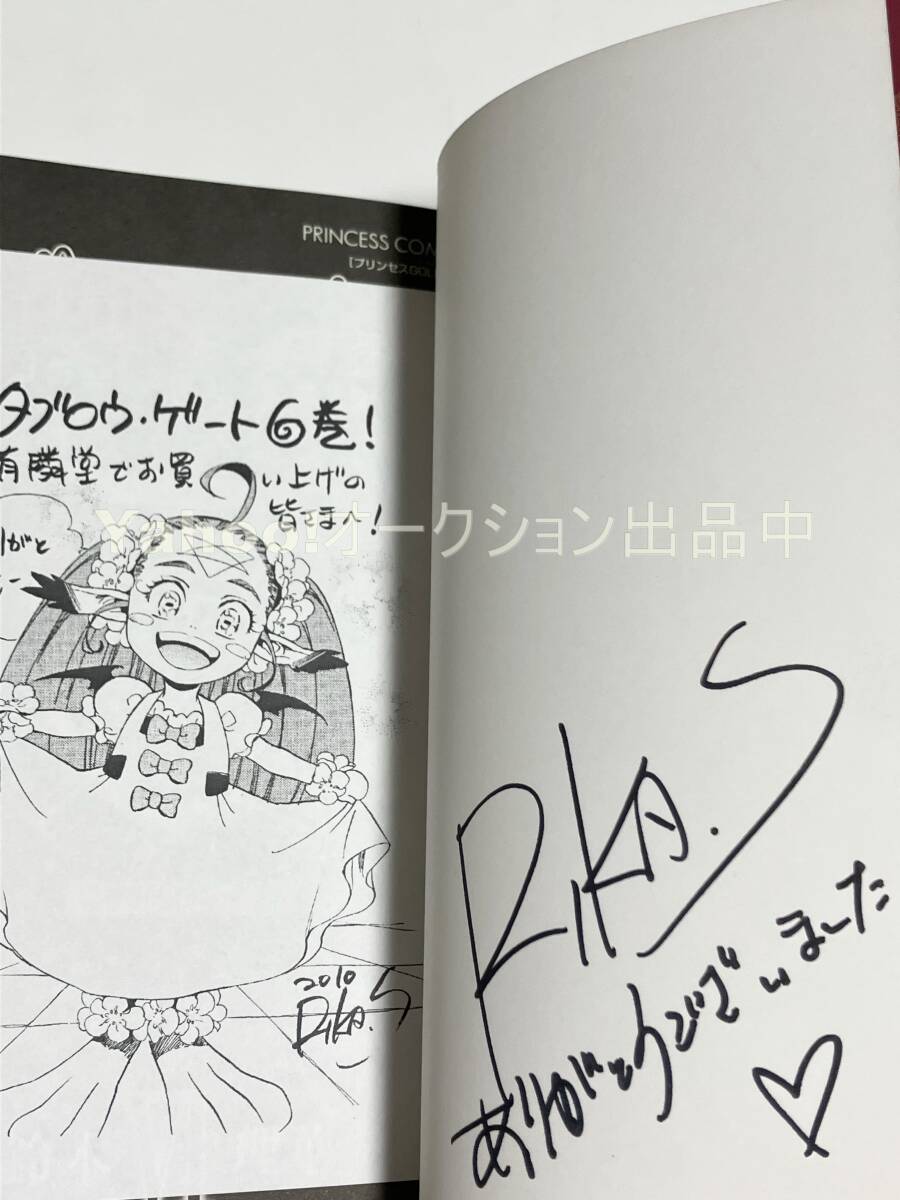 PRINCESS COM
[プリンセスGOL
タブロウ・ゲート⑥巻!
有隣堂でお買い上げの
皆さまへ!
りがと
Yahoo!オークション出品中
2010
Rika.S
Rika.S
ありがとうございました
♡